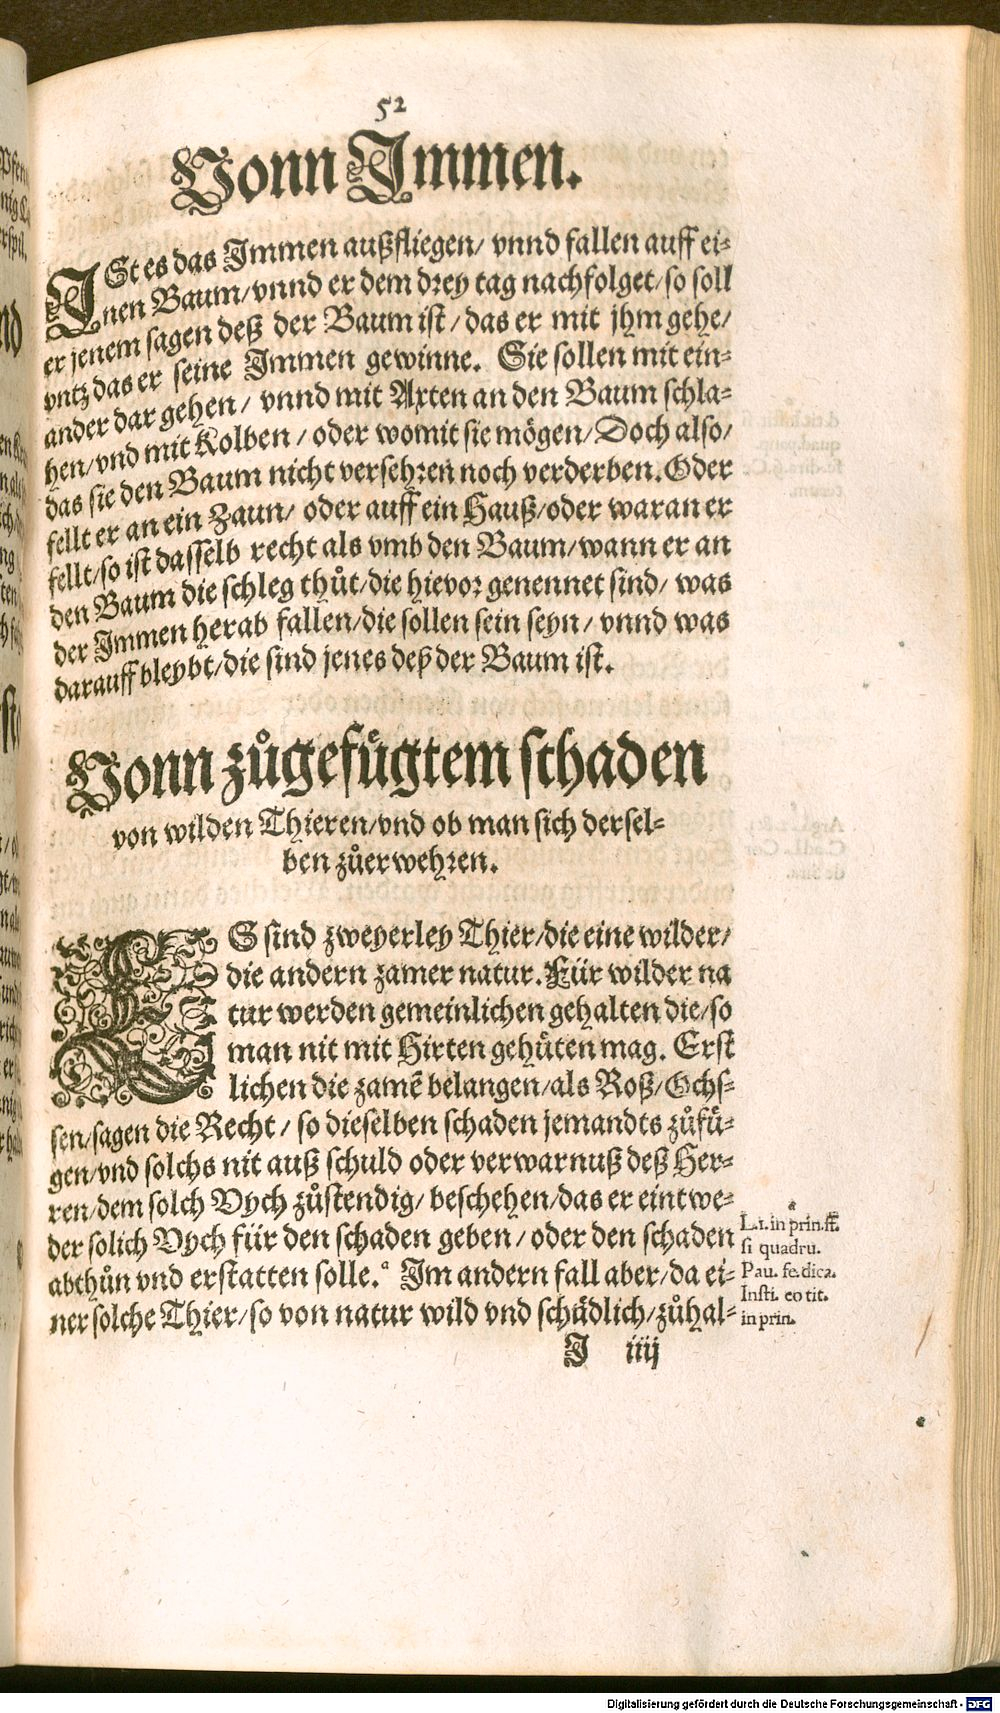 52
Vonn Immen.
ISt es das Immen außfliegen/ vnnd fallen auff ei-
nen Baum/vnnd er dem drey tag nachfolget/so soll
er jenem sagen deß der Baum ist/das er mit jhm gehe/
vntz das er seine Immen gewinne. Sie sollen mit ein-
ander dar gehen/ vnnd mit Axten an den Baum schla-
hen/vnd mit Kolben/oder womit sie mögen/Doch also/
das sie den Baum nicht versehren noch verderben. Oder
fellt er an ein Zaun/ oder auff ein Hauß/oder waran er
fellt/so ist dasselb recht als vmb den Baum/wann er an
den Baum die schleg thůt/die hievor genennet sind/ was
der Immen herab fallen/die sollen sein seyn/ vnnd was
darauff bleybt/die sind jenes deß der Baum ist.
Vonn zůgefůgtem schaden
von wilden Thieren/vnd ob man sich dersel-
ben zůerwehren.
ES sind zweyerley Thier/die eine wilder/
die andern zamer natur. Für wilder na
tur werden gemeinlichen gehalten die/so
man nit mit Hirten gehůten mag. Erst
lichen die zamē belangen/als Roß/Ochs-
sen/sagen die Recht/ so dieselben schaden jemandts zůfů-
gen/vnd solchs nit auß schuld oder verwarnuß deß Her-
ren/dem solch Vych zůstendig/ beschehen/das er eintwe-
der solich Vych für den schaden geben/oder den schaden
abthůn vnd erstatten solle.ᵃ Im andern fall aber/da ei-
ner solche Thier/so von natur wild vnd schädlich/zůhal-
I iiij
a
L.1. in prin. ff.
si quadru.
Pau. fe. dica.
Insti. eo tit.
in prin.
Digitalisierung gefördert durch die Deutsche Forschungsgemeinschaft - DFG